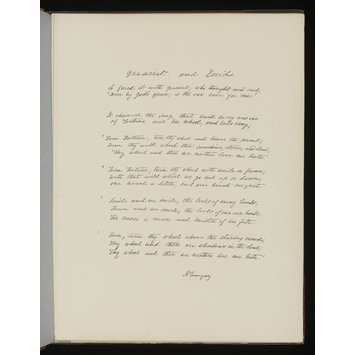 Geraint and Enid.
So fared it with Geraint, who thought and said,
"Here by God's grace, is the one voice for me."
It chanced the song that Enid sang was one
of Fortune and her wheel, and Enid sang,
"Turn Fortune, turn thy wheel and lower the proud;
Turn thy wild wheel thro' sunshine, storm, and cloud;
Thy wheel and thee we neither love nor hate.
"Turn Fortune, turn thy wheel with smile or frown;
With that wild wheel we go not up or down;
Our hoard is little, but our hearts are great.
"Smile and we smile, the lords of many lands;
Frown and we smile, the lords of our own hands;
For man is man and master of his fate.
"Turn, turn thy wheel above the staring crowd;
Thy wheel and thou are shadows in the cloud;
Thy wheel and thee we neither love nor hate."
A Tennyson